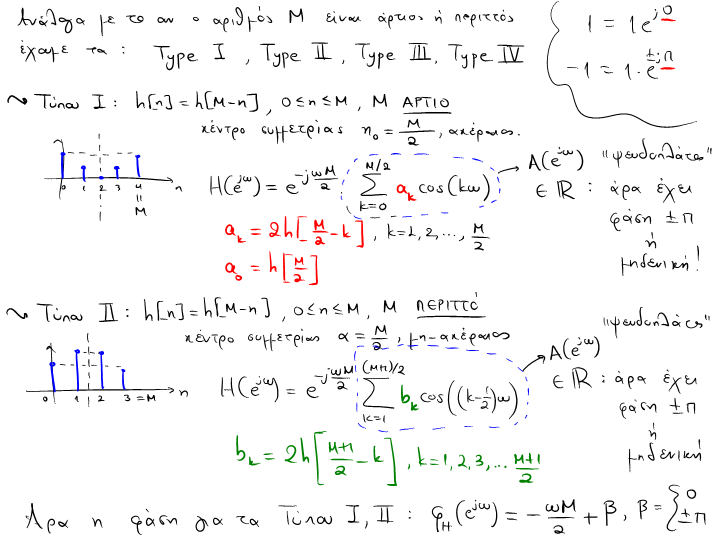 Ανάλογα με το αν ο αριθμός M είναι άρτιος ή περιττός
έχουμε τα : Type I , Type II , Type III, Type IV
1 = 1e^{j0}
-1 = 1·e^{±jπ}
~> Τύπου I : h[n] = h[M-n] , 0≤n≤M , M ΑΡΤΙΟ
κέντρο συμμετρίας n₀ = M/2 , ακέραιος.
0 1 2 3 4 n
= M
H(e^{jω}) = e^{-jωM/2} ∑_{k=0}^{M/2} a_k cos(kω)
→ A(e^{jω}) "ψευδοπλάτος"
∈ ℝ : άρα έχει
φάση ±π
ή
μηδενική!
a_k = 2h[M/2 - k] , k=1,2,..., M/2
a_0 = h[M/2]
~> Τύπου II : h[n] = h[M-n] , 0≤n≤M , M ΠΕΡΙΤΤΟ
κέντρο συμμετρίας α = M/2 , μη-ακέραιος
0 1 2 3 =M n
H(e^{jω}) = e^{-jωM/2} ∑_{k=1}^{(M+1)/2} b_k cos((k-1/2)ω)
"ψευδοπλάτος"
→ A(e^{jω})
∈ ℝ : άρα έχει
φάση ±π
ή
μηδενική
b_k = 2h[M+1/2 - k] , k=1,2,3,... M+1/2
Άρα η φάση για τα Τύπου I, II : φ_H(e^{jω}) = -ωM/2 + β , β = { 0 ±π